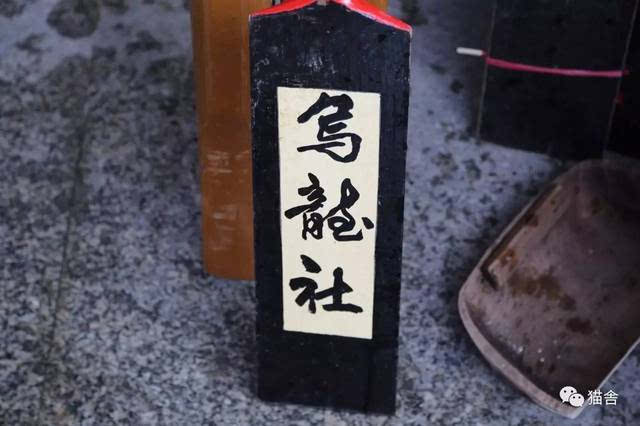 烏龍社
猫舍